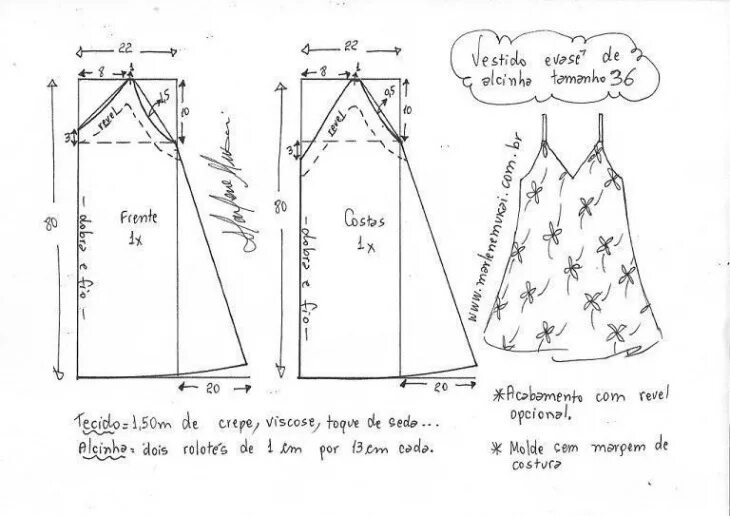 Vestido evasê de
alcinha tamanho 36
22
8
1
1,5
10
3
revel
80
Frente
1x
dobra e fio
20
Marlene Mukai
22
8
1
0,5
10
3
revel
80
Costas
1x
dobra e fio
20
www.marlenemukai.com.br
Tecido = 1,50m de crepe, viscose, toque de seda...
Alcinha = dois rolotês de 1 cm por 13 cm cada.
*Acabamento com revel
opcional.
* Molde sem margem de
costura